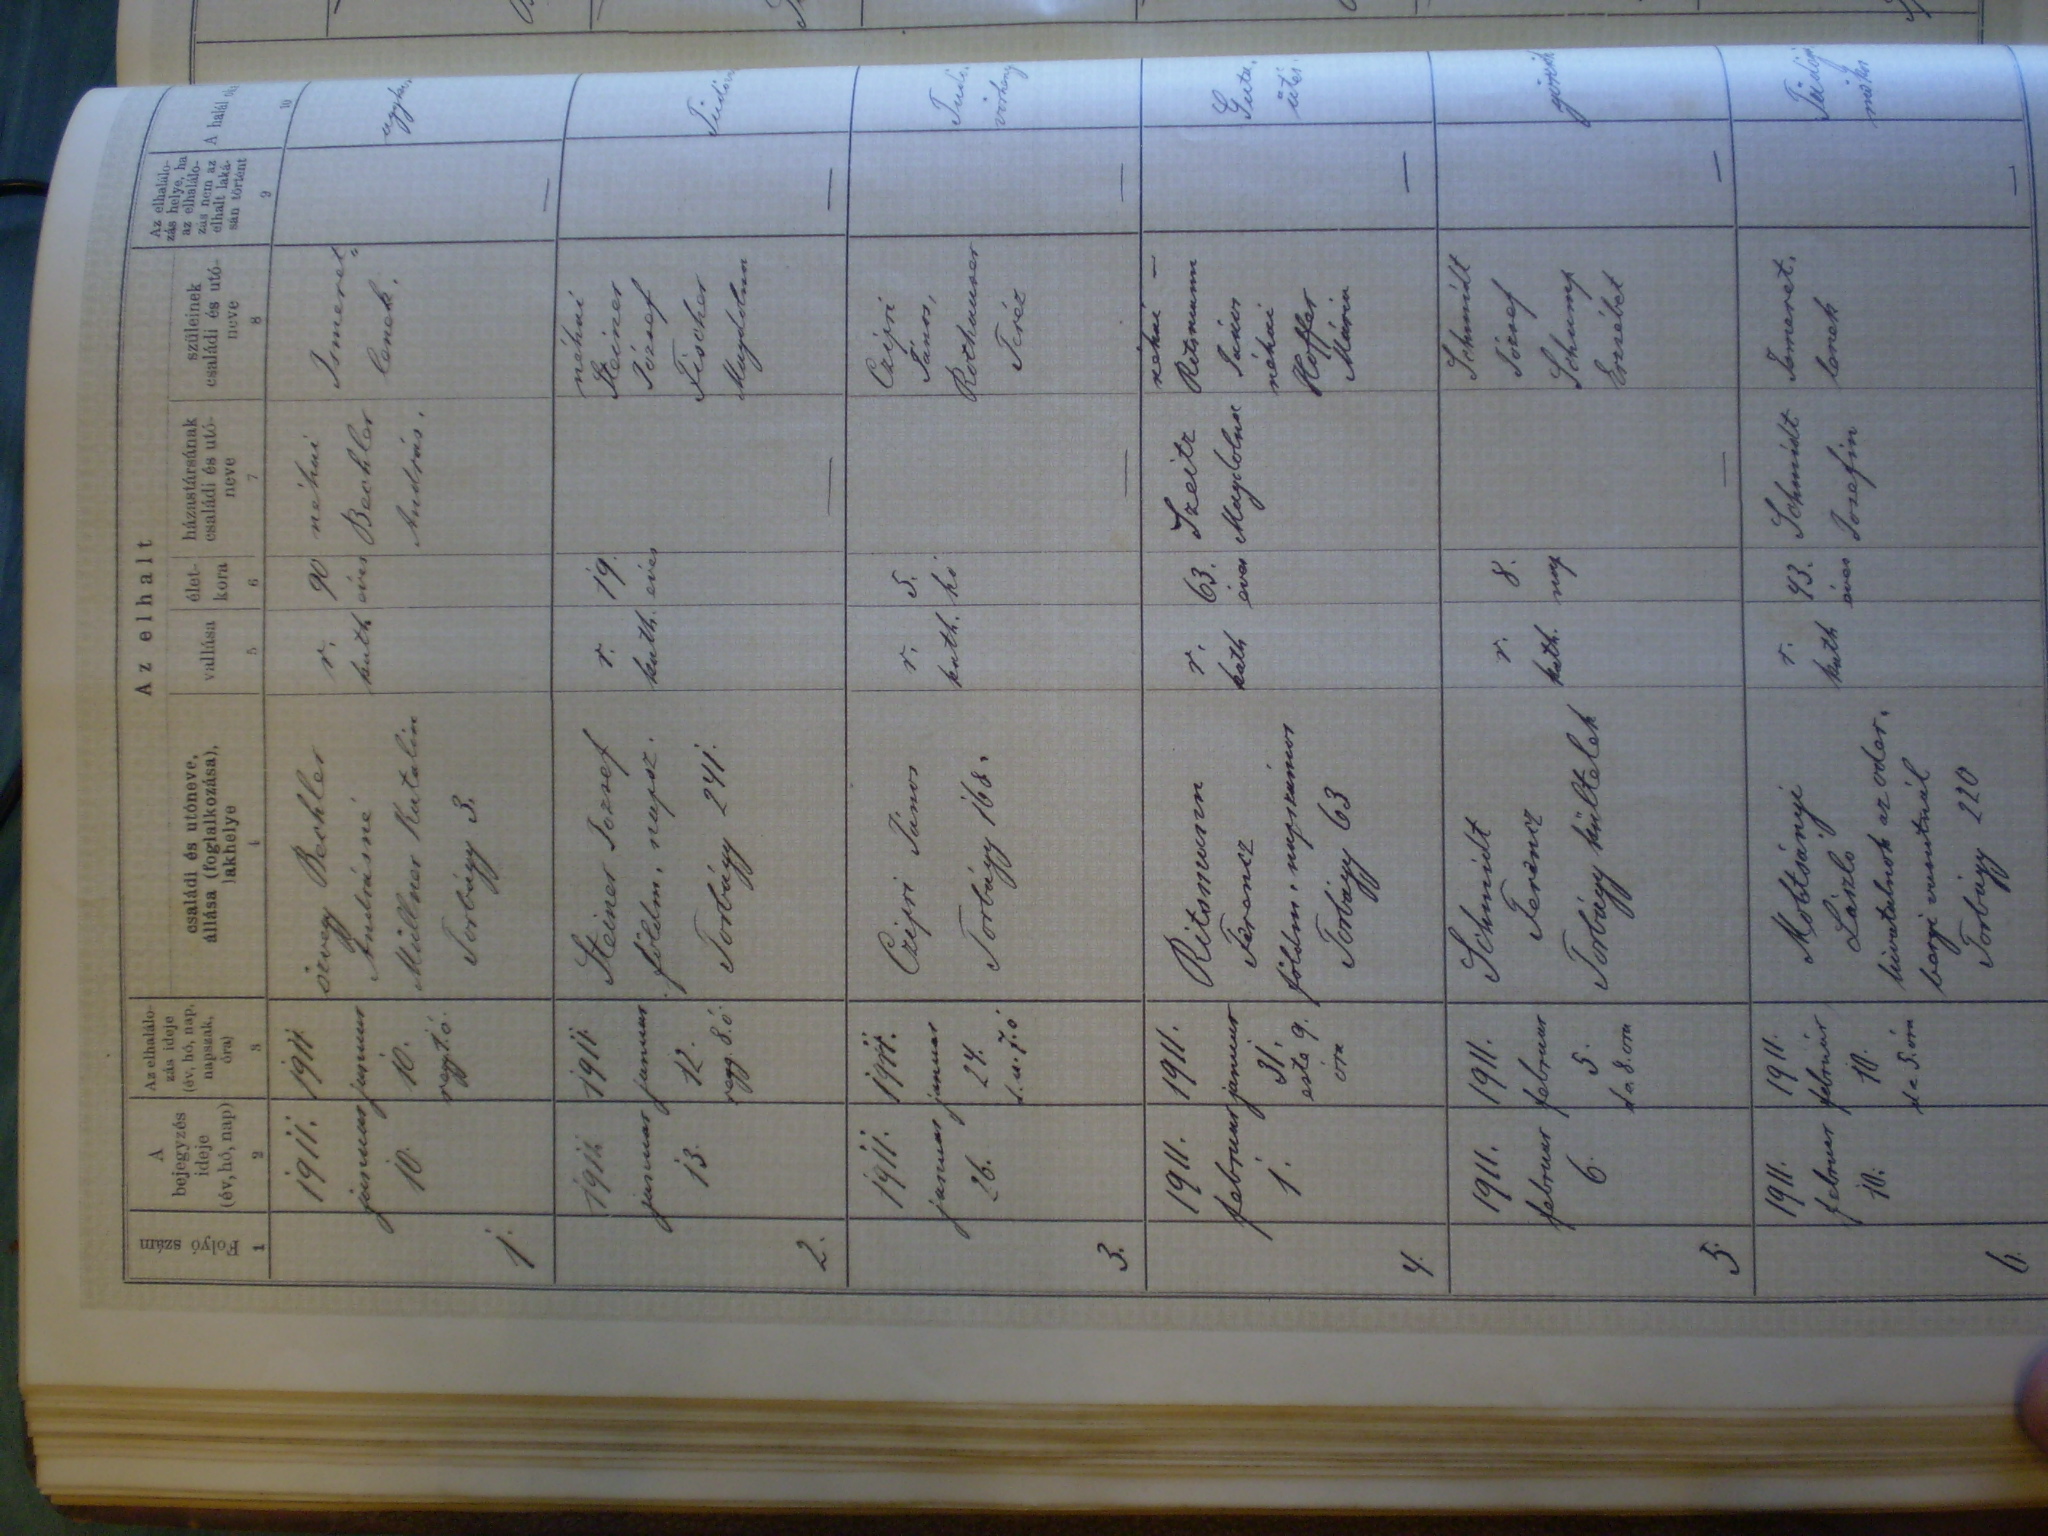 Az elhalt
Folyó szám
A bejegyzés ideje (év, hó, nap)
Az elhalálo-
zás ideje
(év, hó, nap,
napszak,
óra)
családi és utóneve,
állása (foglalkozása),
lakhelye
vallása
élet-
kora
házastársának
családi és utó-
neve
szüleinek
családi és utó-
neve
Az elhalálo-
zás helye, ha
az elhalálo-
zás nem az
elhalt laká-
sán történt
A halál
1
2
3
4
5
6
7
8
9
10
1.
1911.
január
10.
1911.
január
10.
özvegy Bechler
Andrásné
Müllner Katalin
Torbágy 3.
r.
kath
90
éves
néhai
Bechler
András.
Ismeret-
lenek.
—
2.
1911.
január
13.
1911.
január
12.
regg. 8. ó
Steiner József
földm. napsz.
Torbágy 241.
r.
kath.
19.
éves
—
néhai
Steiner
József
Fischer
Magdolna
—
3.
1911.
január
26.
1911.
január
24.
d. u. 7. ó
Czipri János
Torbágy 168.
r.
kath.
5.
hó
—
Czipri
János,
Rothauser
Teréz
—
4.
1911.
február
1.
1911.
január
31.
este 9.
óra
Ritsmann
Ferencz
földm. napszámos
Torbágy 63
r.
kath
63.
éves
Szeitz
Magdolna
néhai —
Ritsmann
János
néhai
Hoffer
Mária
—
Guta-
ütés.
5.
1911.
február
6.
1911.
február
5.
de 8. óra
Schmidt
Ferencz
Torbágy kültelek
r.
kath.
8.
nap
—
Schmidt
József
Schump
Erzsébet
—
görcsök
6.
1911.
február
10.
1911.
február
10.
de 5. óra
László
Torbágy 220
r.
kath
43.
éves
Schmidt
Jozefin
Ismeret-
lenek
—